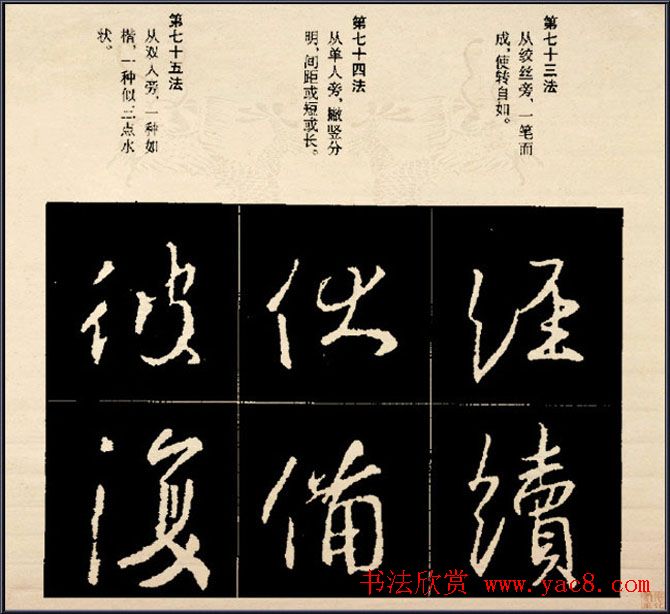 第七十三法
从绞丝旁，一笔而
成，使转自如。
經
續
第七十四法
从单人旁，撇竖分
明，间距或短或长。
伏
備
第七十五法
从双人旁，一种如
楷，一种似三点水
状。
彼
復
书法欣赏 www.yac8.com